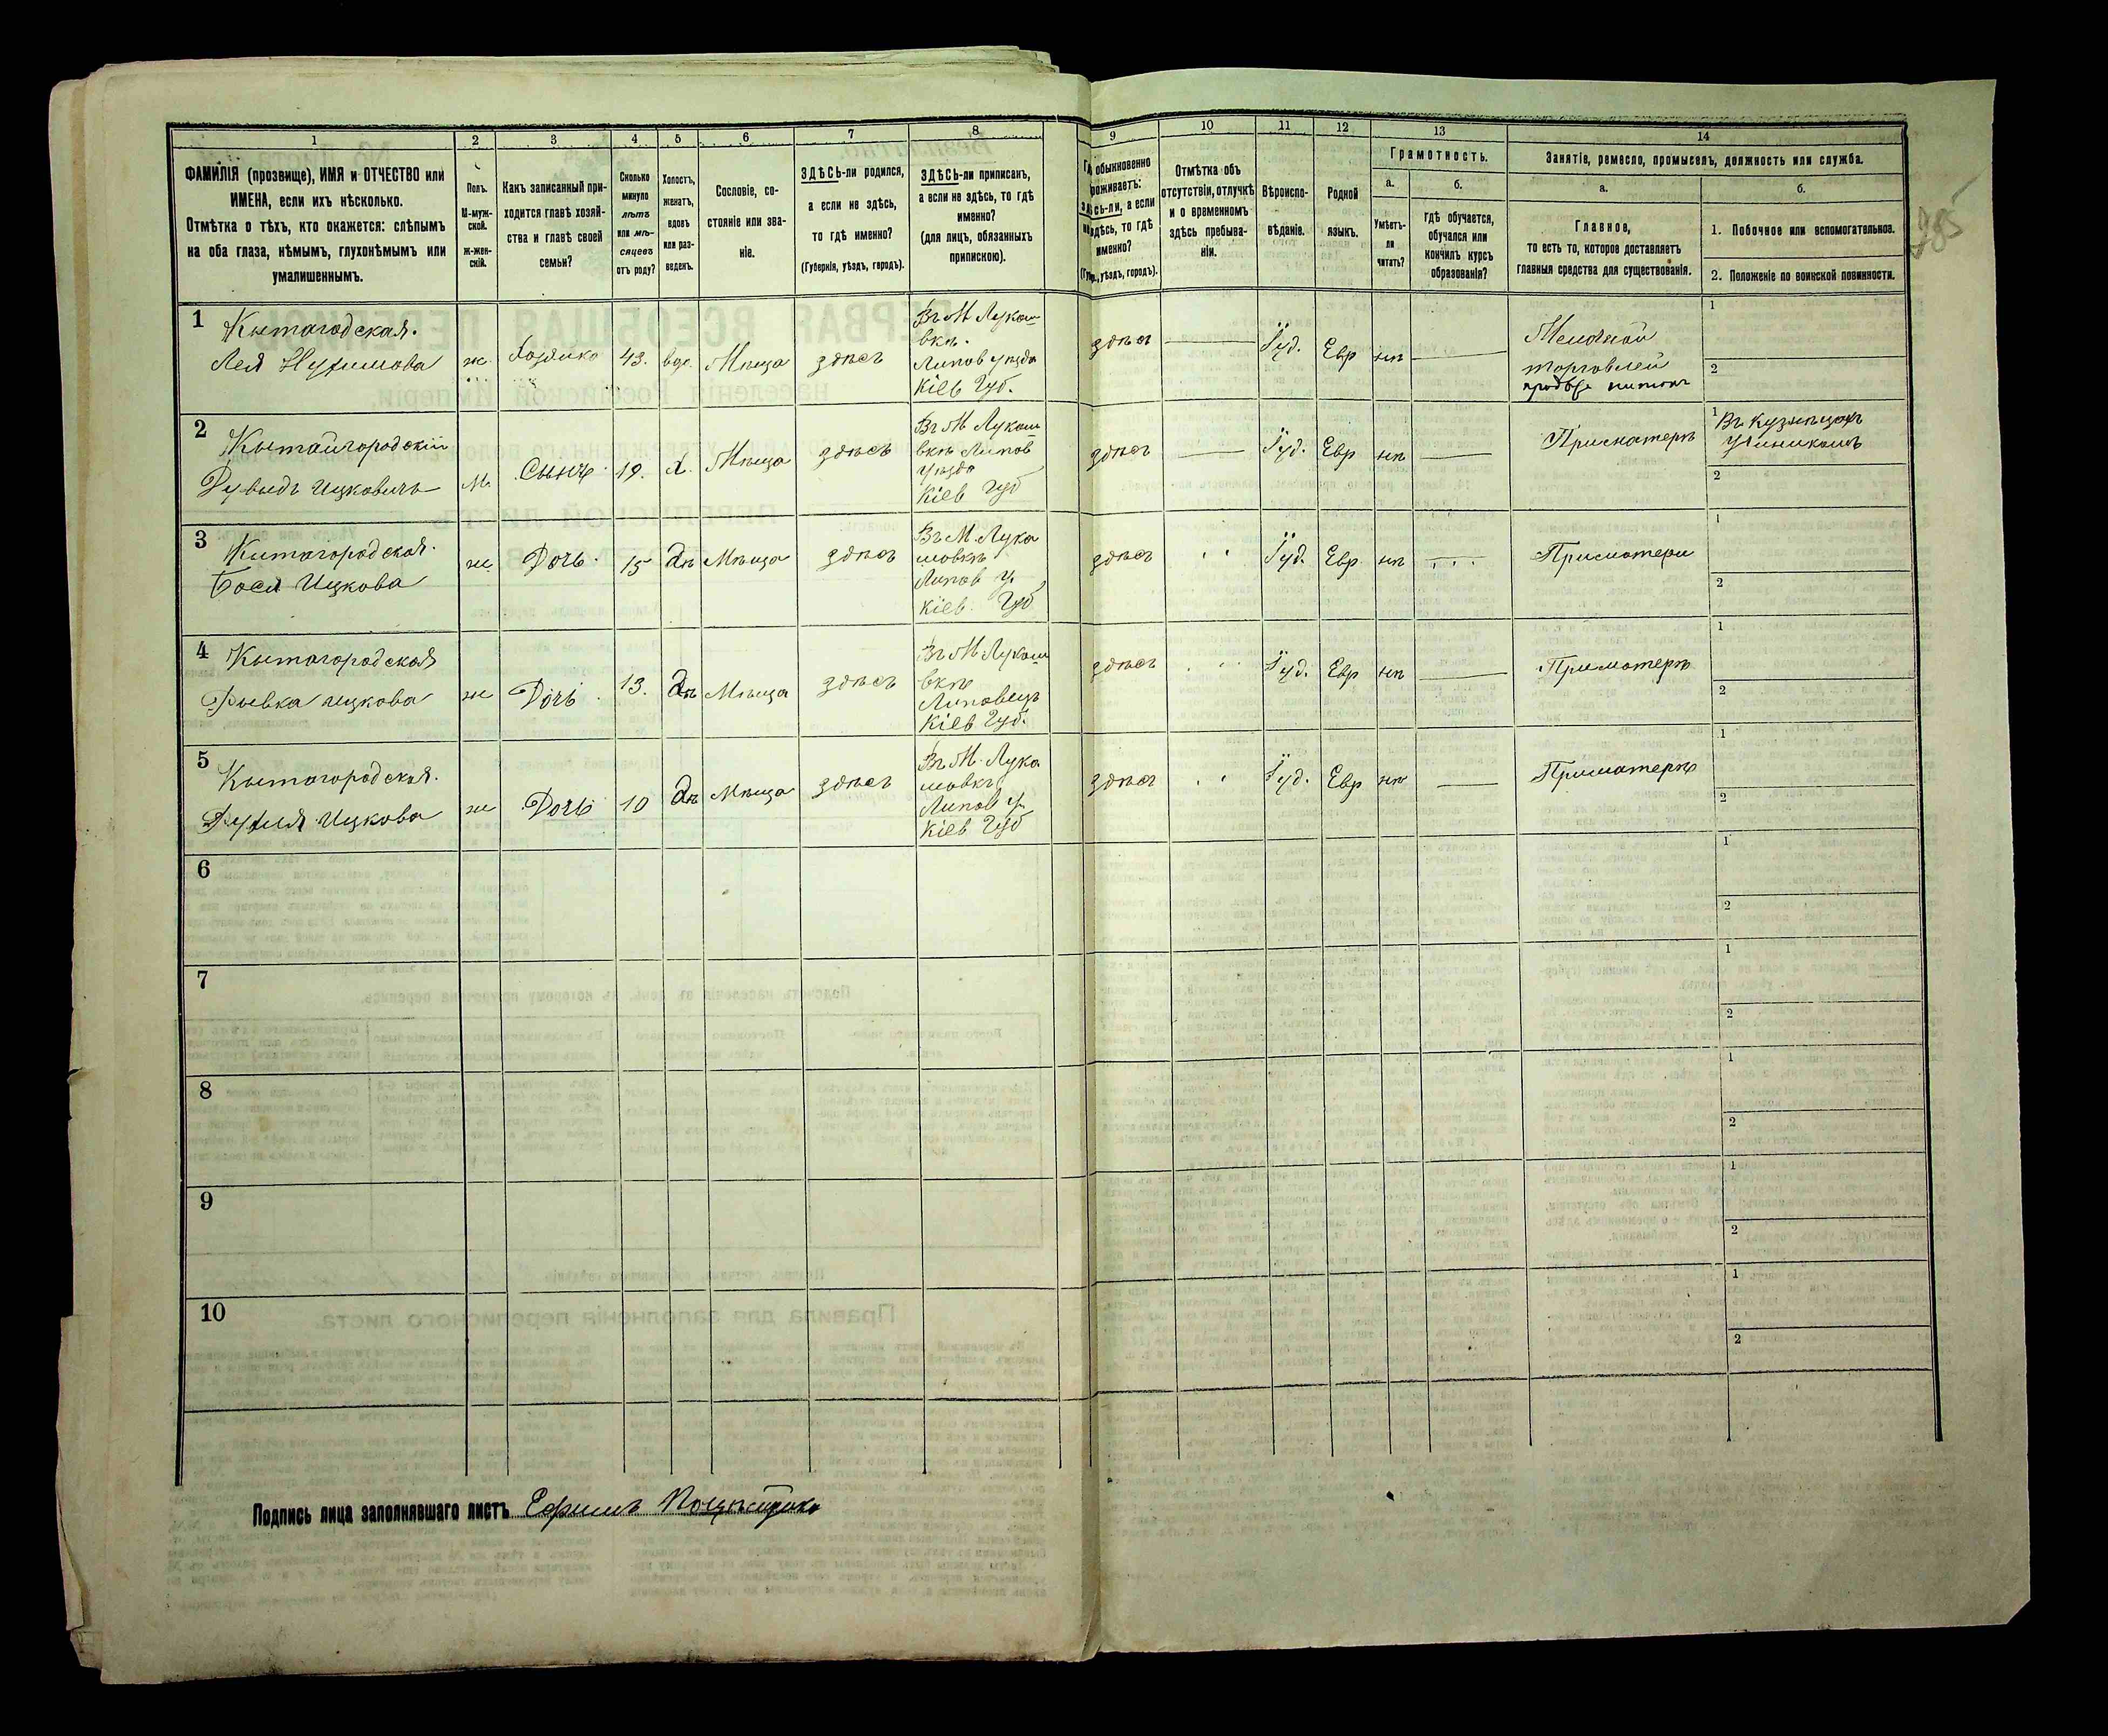 1 2 3 4 5 6 7 8 9 10 11 12 13 14
ФАМИЛІЯ (прозвище), ИМЯ и ОТЧЕСТВО или
ИМЕНА, если ихъ нѣсколько.
Отмѣтка о тѣхъ, кто окажется: слѣпымъ
на оба глаза, нѣмымъ, глухонѣмымъ или
умалишеннымъ.
Полъ.
М-муж-
ской.
ж-жен-
скій.
Какъ записанный при-
ходится главѣ хозяй-
ства и главѣ своей
семьи?
Сколько
минуло
лѣтъ
или мѣ-
сяцевъ
отъ роду?
Холостъ,
женатъ,
вдовъ
или раз-
веденъ.
Сословіе, со-
стояніе или зва-
ніе.
ЗДѢСЬ-ли родился,
а если не здѣсь,
то гдѣ именно?
(Губернія, уѣздъ, городъ).
ЗДѢСЬ-ли приписанъ,
а если не здѣсь, то гдѣ
именно?
(для лицъ, обязанныхъ
припискою).
обыкновенно
а если
то гдѣ
именно?
уѣздъ, городъ).
Отмѣтка объ
отсутствіи, отлучкѣ
и о временномъ
здѣсь пребыва-
ніи.
Вѣроиспо-
вѣданіе.
Родной
языкъ.
Грамотность.
а.
Умѣетъ-
ли
читать?
б.
гдѣ обучается,
обучался или
кончилъ курсъ
образованія?
Занятіе, ремесло, промыселъ, должность или служба.
а.
Главное,
то есть то, которое доставляетъ
главныя средства для существованія.
б.
1. Побочное или вспомогательное.
2. Положеніе по воинской повинности.
285
1 Кытагодская.
Лея Нухимова ж. Хозяйка 43. вдо. Мѣща здѣсь
Въ М Лукаш
вкѣ.
Липов уѣзда
Кіев Губ.
здѣсь — Іуд. Евр нѣ —
Мелочной
торговлей
1
2
2 Кытайгородскій
Дувидъ Ицковичъ м. Сынъ 19. х. Мѣща здѣсь
Въ М Лукаш
вкѣ Липов
уѣзда
Кіев Губ
здѣсь — Іуд. Евр нѣ —
Приматерѣ
1 Въ Кузнѣцахъ
ученикомъ
2
3 Китагородская.
Бася Ицкова ж Дочь 15 дѣ Мѣща здѣсь
Въ М. Лука
шовкѣ
Липов у.
Кіев. Губ
здѣсь Іуд. Евр нѣ
Приматери
1
2
4 Кытагородская
Рывка ицкова ж Дочь 13. дѣ Мѣща здѣсь
Въ М Лукаш
вкѣ
Липовецъ
Кіев Губ.
здѣсь Іуд. Евр нѣ —
Приматерѣ
1
2
5 Кытагородская.
Рухля Ицкова ж Дочь 10 дѣ Мѣща здѣсь
Въ М. Лука
шовкѣ
Липов у.
Кіев Губ
здѣсь Іуд. Евр нѣ —
Приматерѣ
1
2
6
1
2
7
1
2
8
1
2
9
1
2
10
1
2
Подпись лица заполнявшаго листъ Ефимъ